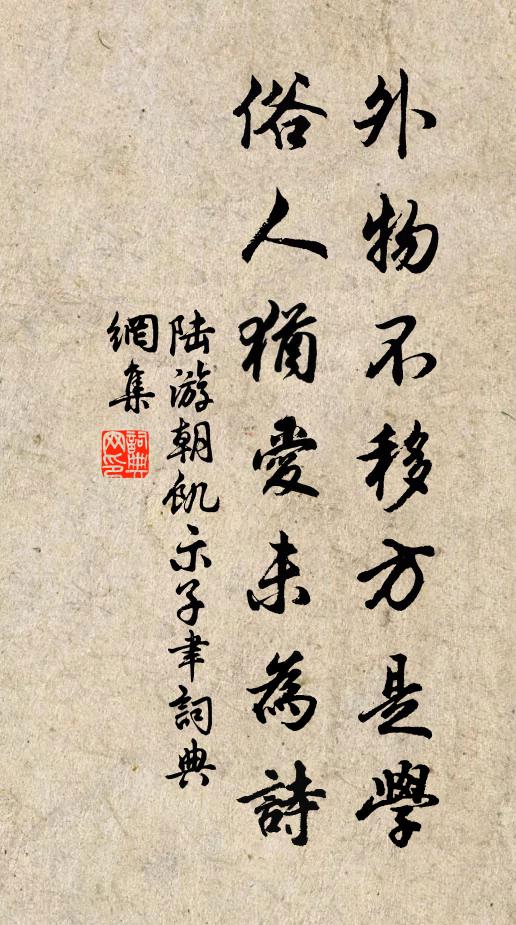 外物不移方是學
俗人猶愛未為詩
陸游朝飢示子聿詞典
網集
詞典
网印